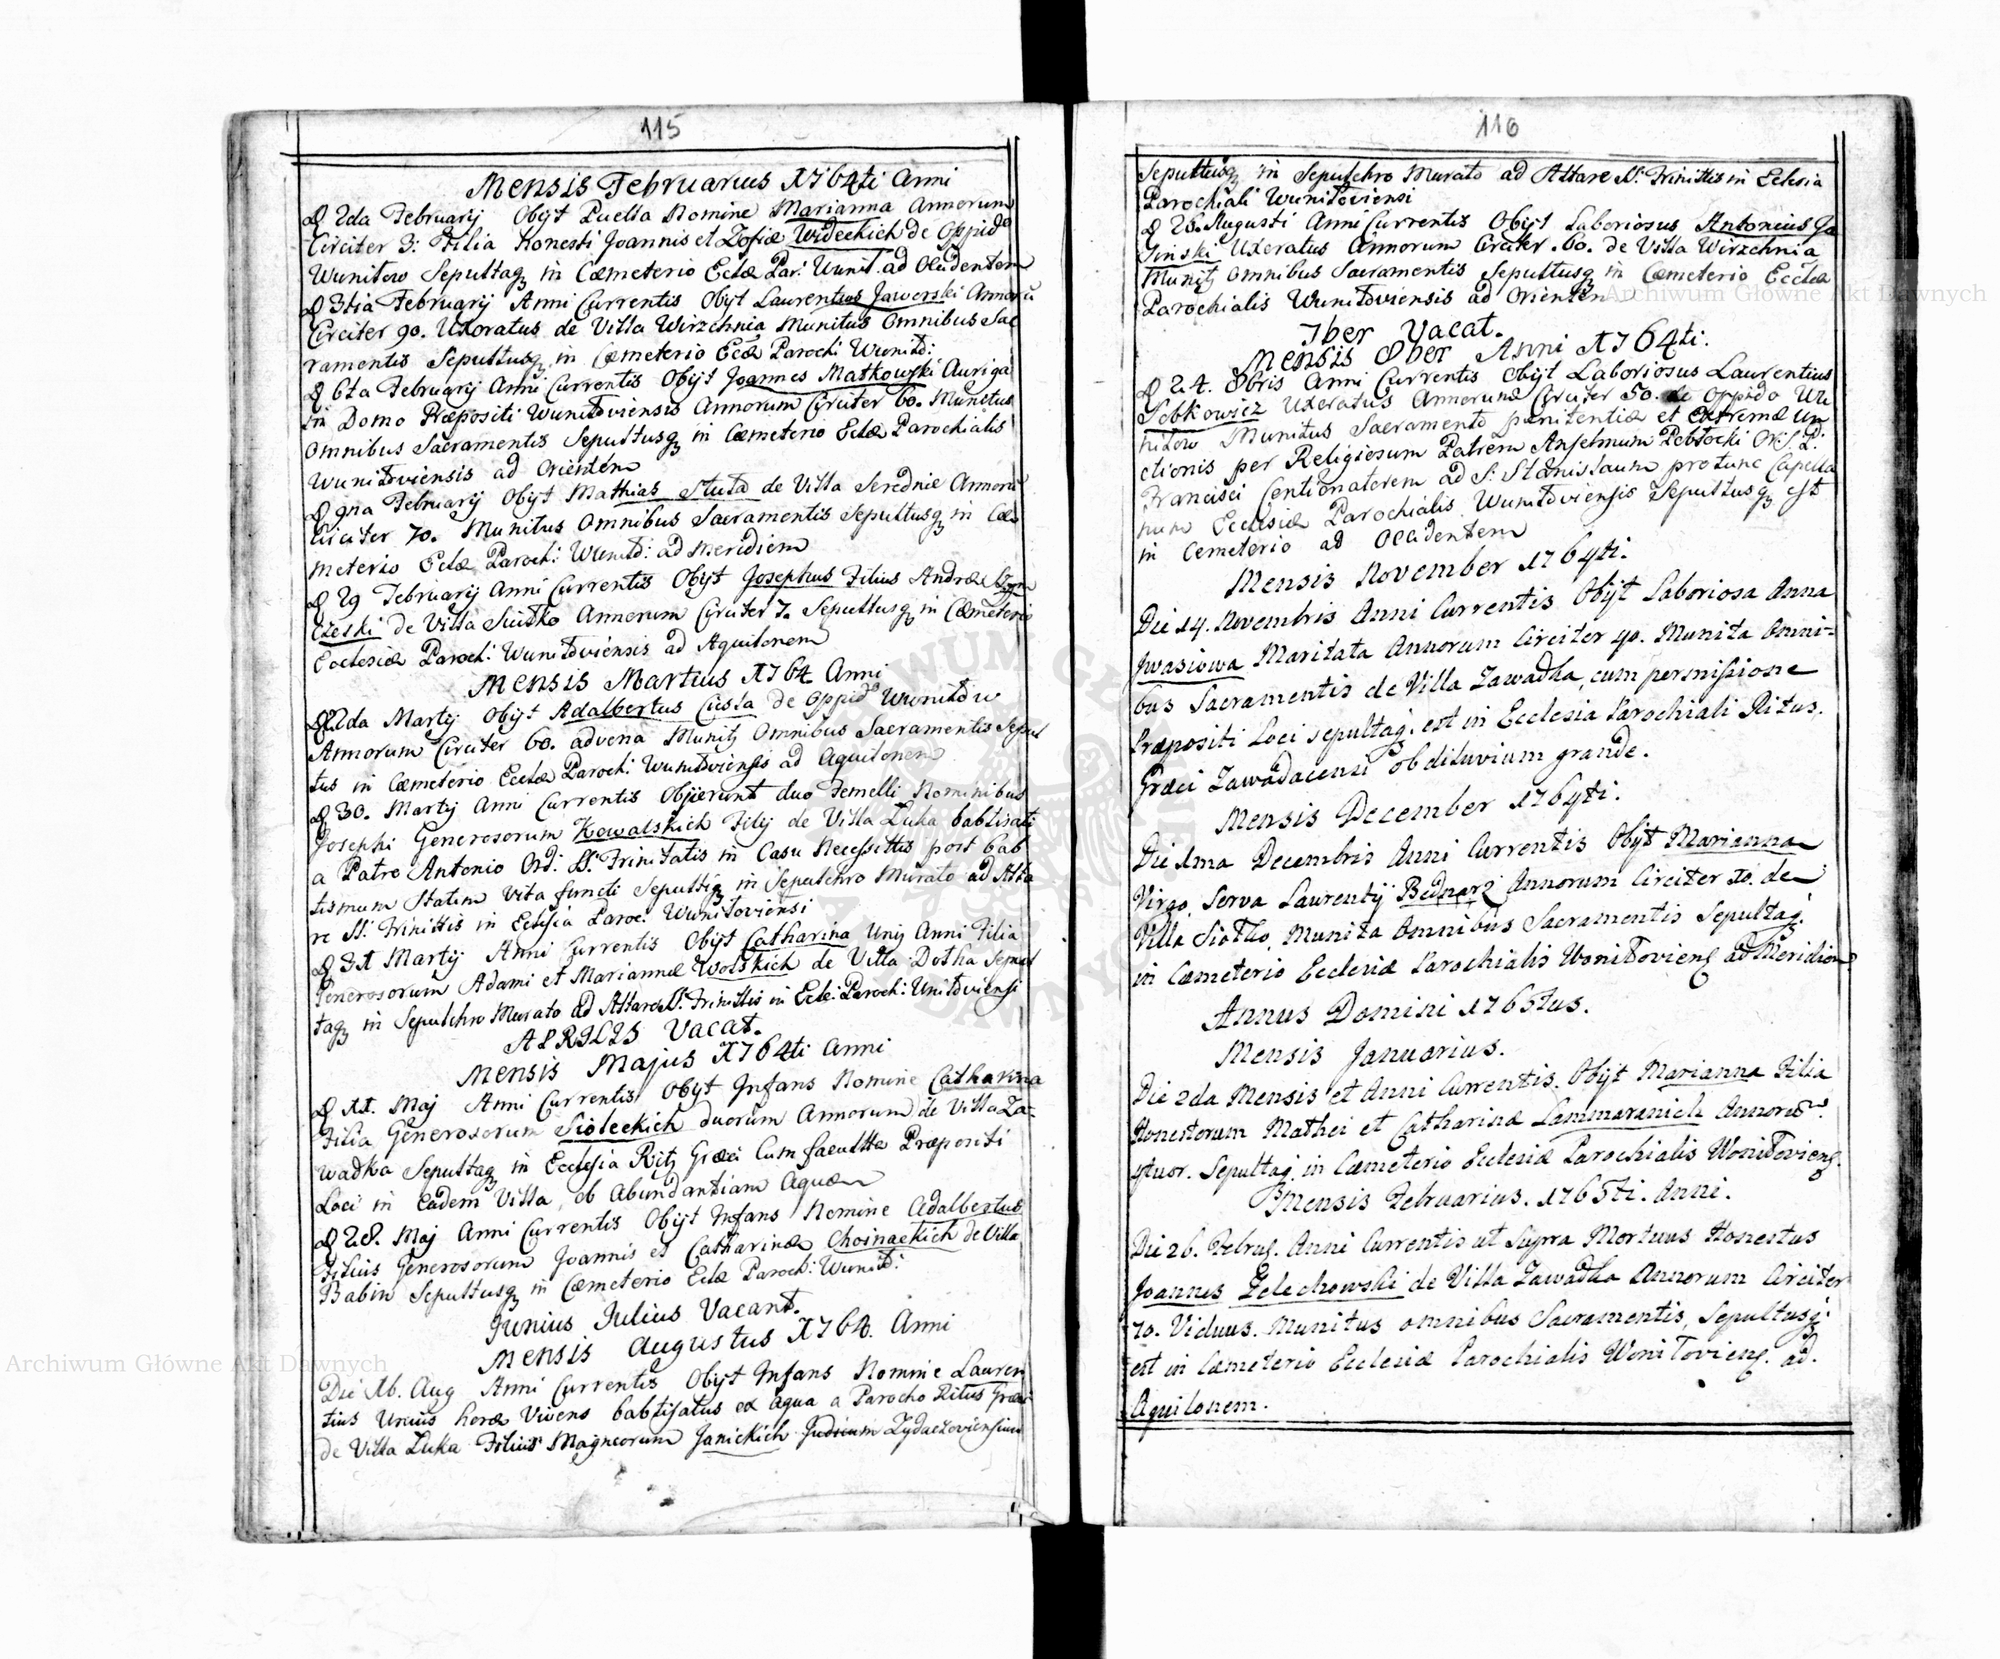 115
Mensis Februarius 1764ti Anni
D 2da Februarij Obijt Puella Nomine Marianna Annorum
Circiter 3: Filia Honesti Joannis et Zofiæ Wideckich de Oppido
Wunitow Sepultaqz in Cæmeterio Eclæ Par: Wunit. ad Occidentem
D 3tia Februarij Anni Currentis Obijt Laurentius Jaworski Annorū
Circiter 90. Uxoratus de Villa Wirzchnia Munitus Omnibus Sac
ramentis Sepultusqz in Cæmeterio Eclæ Parochi Wunitō:
D 6ta Februarij Anni Currentis Obijt Joannes Matkowski Auriga
in Domo Præpositi Wunitoviensis Annorum Circiter 60. Munitus
Omnibus Sacramentis Sepultusqz in Cæmeterio Eclæ Parochialis
Wunitoviensis ad Orientem
D 9na Februarij Obijt Mathias Stuta de Villa Serednie Annorū
Circiter 70. Munitus Omnibus Sacramentis Sepultusqz in Cæ
meterio Eclæ Paroch: Wunitō: ad Meridiem
D 29 Februarij Anni Currentis Obijt Josephus Filius Andreæ
de Villa Siutko Annorum Circiter 7. Sepultusqz in Cæmeterio
Ecclesiæ Paroch: Wunitoviensis ad Aquilonem
Mensis Martius 1764 Anni
D 2da Martij Obijt Adalbertus Ciesla de Oppido Wunitow
Annorum Circiter 60. advena Munitqz Omnibus Sacramentis Sepul
tus in Cæmeterio Eclæ Paroch: Wunitoviensis ad Aquilonem
D 30. Martij Anni Currentis Objierunt duo Gemelli Nominibus
Josephi Generosorum Kowalskich Filij de Villa Luka babtisati
a Patre Antonio Ord: SS: Trinitatis in Casu Necessittis post bab
tismum Statim vita functi Sepultiqz in Sepulchro Murato ad Alta
re SS: Trinittis in Eclesia Paroc: Wunitoviensi
D 31 Martij Anni Currentis Obijt Catharina Unij Anni Filia
Generosorum Adami et Mariannæ Wolskich de Villa Dołha Sepul
taqz in Sepulchro Murato ad Altare SS: Trinittis in Ecle: Paroch: Unitoviensi
APRILIS Vacat.
Mensis Majus 1764ti Anni
D 11. Maj Anni Currentis Obijt Infans Nomine Catharina
Filia Generosorum Siołeckich duorum Annorum de Villa Za-
wadka Sepultaqz in Ecclesia Ritqz Græci Cum facultte Præpositi
Loci in eadem Villa, ob Abundantiam Aquæ
D 28. Maj Anni Currentis Obijt Infans Nomine Adalbertus
Filius Generosorum Joannis et Catharinæ Choinackich de Villa
Babin Sepultusqz in Cæmeterio Eclæ Paroch: Wunitō:
Junius Julius Vacant.
Mensis Augustus 1764. Anni
Die 16. Aug Anni Currentis Obijt Infans Nomine Lauren
tius Unius horæ Vivens babtisatus ex aqua a Parocho Ritus Græci
de Villa Luka Filius Magneorum Janickich Judicum Zydaczoviensium
116
Sepultusqz in Sepulchro Murato ad Altare SS: Trinittis in Eclesia
Parochiali Wunitoviensi
D 26. Augusti Anni Currentis Obijt Laboriosus Antonius Ga
siński Uxoratus Annorum Circiter .60. de Villa Wirzchnia
Munitqz Omnibus Sacramentis Sepultusqz in Cæmeterio Ecclæ
Parochialis Wunitoviensis ad Orientem
7ber Vacat.
Mensis 8ber Anni 1764ti.
D 24. 8bris Anni Currentis Obijt Laboriosus Laurentius
Sobkowicz Uxoratus Annorum Circiter 50. de Oppido Wu
nitow Munitus Sacramento pænitentiæ et Extremæ Un
ctionis per Religiosum Patrem Anselmum Pebłocki Or: S. P:
Francisci Contionatorem ad S: Stanislaum protunc Capella
num Ecclesiæ Parochialis Wunitoviensis Sepultusqz est
in Cemeterio ad Occidentem
Mensis November 1764ti.
Die 14. Novembris Anni Currentis Obijt Laboriosa Anna
Jwasiowa Maritata Annorum Circiter 40. Munita Omni-
bus Sacramentis de Villa Zawadka, cum permissione
Præpositi Loci sepultaq. est in Ecclesia Parochiali Ritus.
Græci Zawadacensi ob diluvium grande.
Mensis December 1764ti.
Die 1ma Decembris Anni Currentis Obijt Marianna
Virgo, Serva Laurentij Bednarz Annorum Circiter 20. de
Villa Siołko, Munita Omnibus Sacramentis Sepultaq.
in Cæmeterio Ecclesiæ Parochialis Wonitovieng ad Meridiem
Annus Domini 1765tus.
Mensis Januarius.
Die 2da Mensis et Anni Currentis. Obijt Marianna Filia
Honestorum Mathei et Catharinæ Lammaranich Annorum
4tuor. Sepultaq. in Cæmeterio Ecclesiæ Parochialis Wonitovieng.
Mensis Februarius. 1765ti. Anni.
Die 26. Febru. Anni Currentis ut Supra Mortuus Honestus
Joannes Zelechowski de Villa Zawadka Annorum Circiter
70. Viduus. Munitus omnibus Sacramentis, Sepultusq:
est in Cæmeterio Ecclesiæ Parochialis Wonitovieng. ad.
Aquilonem.
Archiwum Główne Akt Dawnych
Archiwum Główne Akt Dawnych